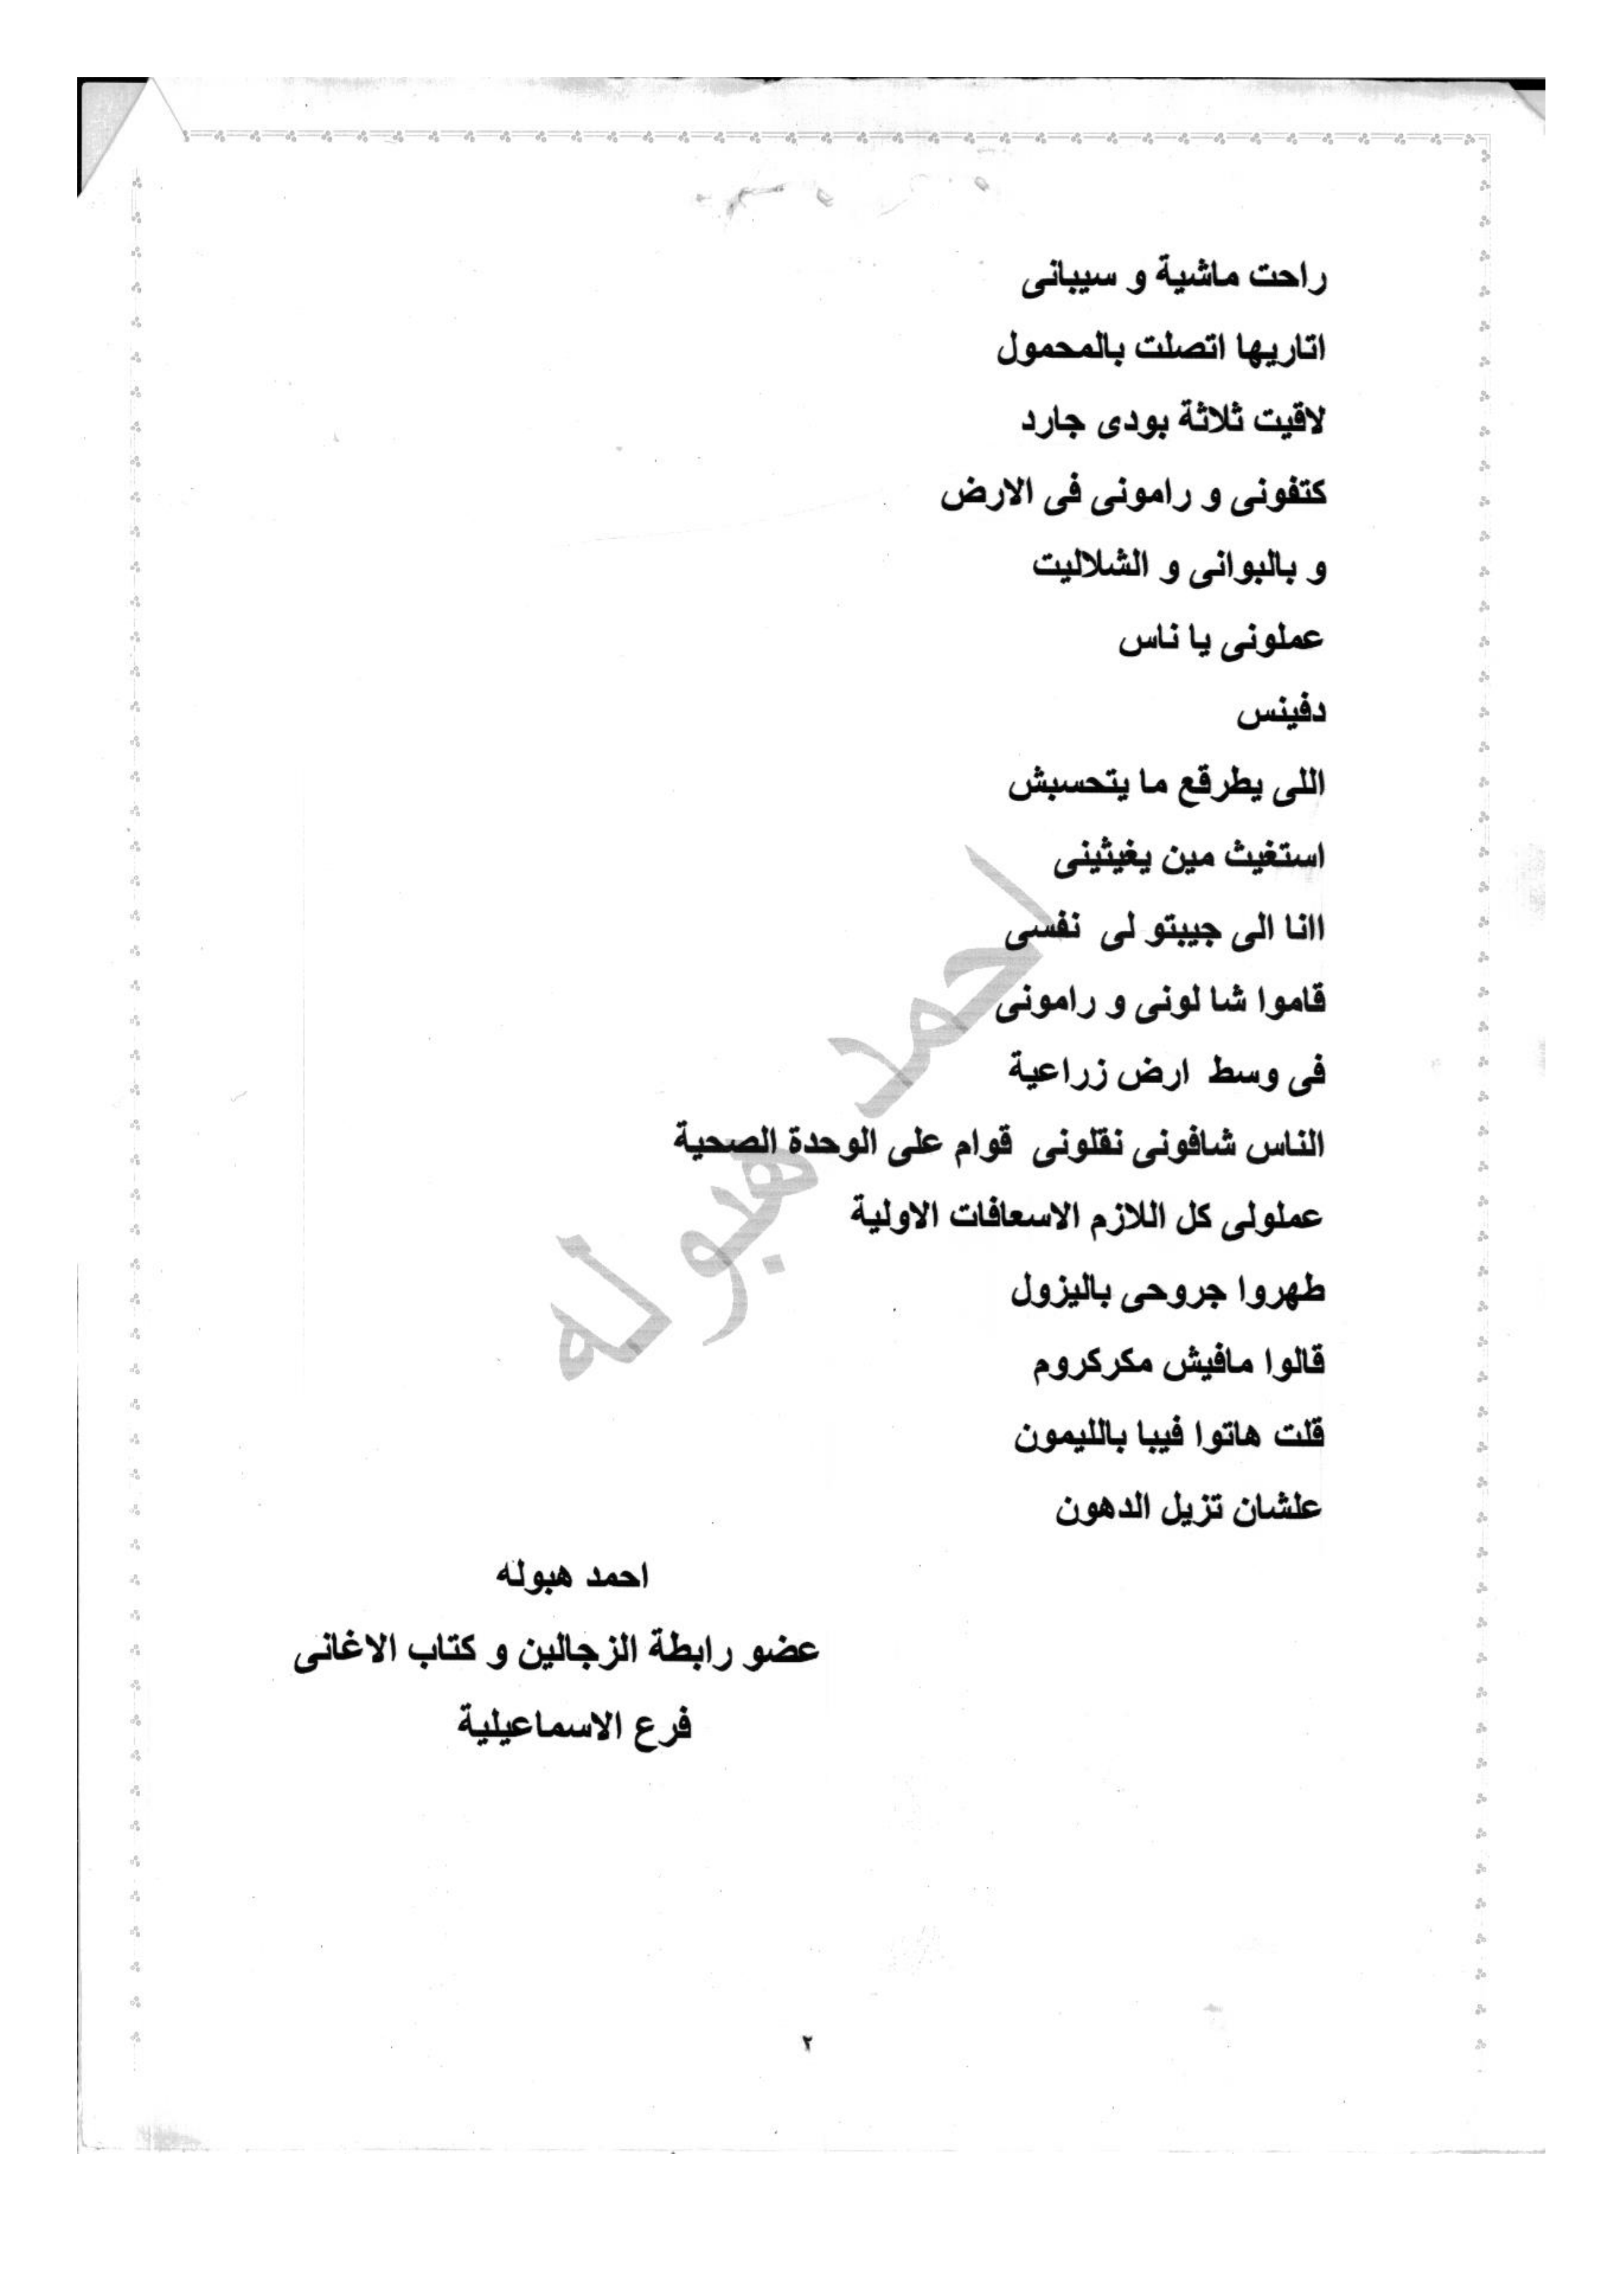 راحت ماشية و سيبانى
اتاريها اتصلت بالمحمول
لاقيت ثلاثة بودى جارد
كتفونى و رامونى فى الارض
و بالبوانى و الشلاليت
عملونى يا ناس
دفينس
اللى يطرقع ما يتحسبش
استغيث مين يغيثينى
اانا الى جيبتو لى نفسى
قاموا شا لونى و رامونى
فى وسط ارض زراعية
الناس شافونى نقلونى قوام على الوحدة الصحية
عملولى كل اللازم الاسعافات الاولية
طهروا جروحى باليزول
قالوا مافيش مكركروم
قلت هاتوا فيبا بالليمون
علشان تزيل الدهون
احمد هبوله
احمد هبوله
عضو رابطة الزجالين و كتاب الاغانى
فرع الاسماعيلية
٢